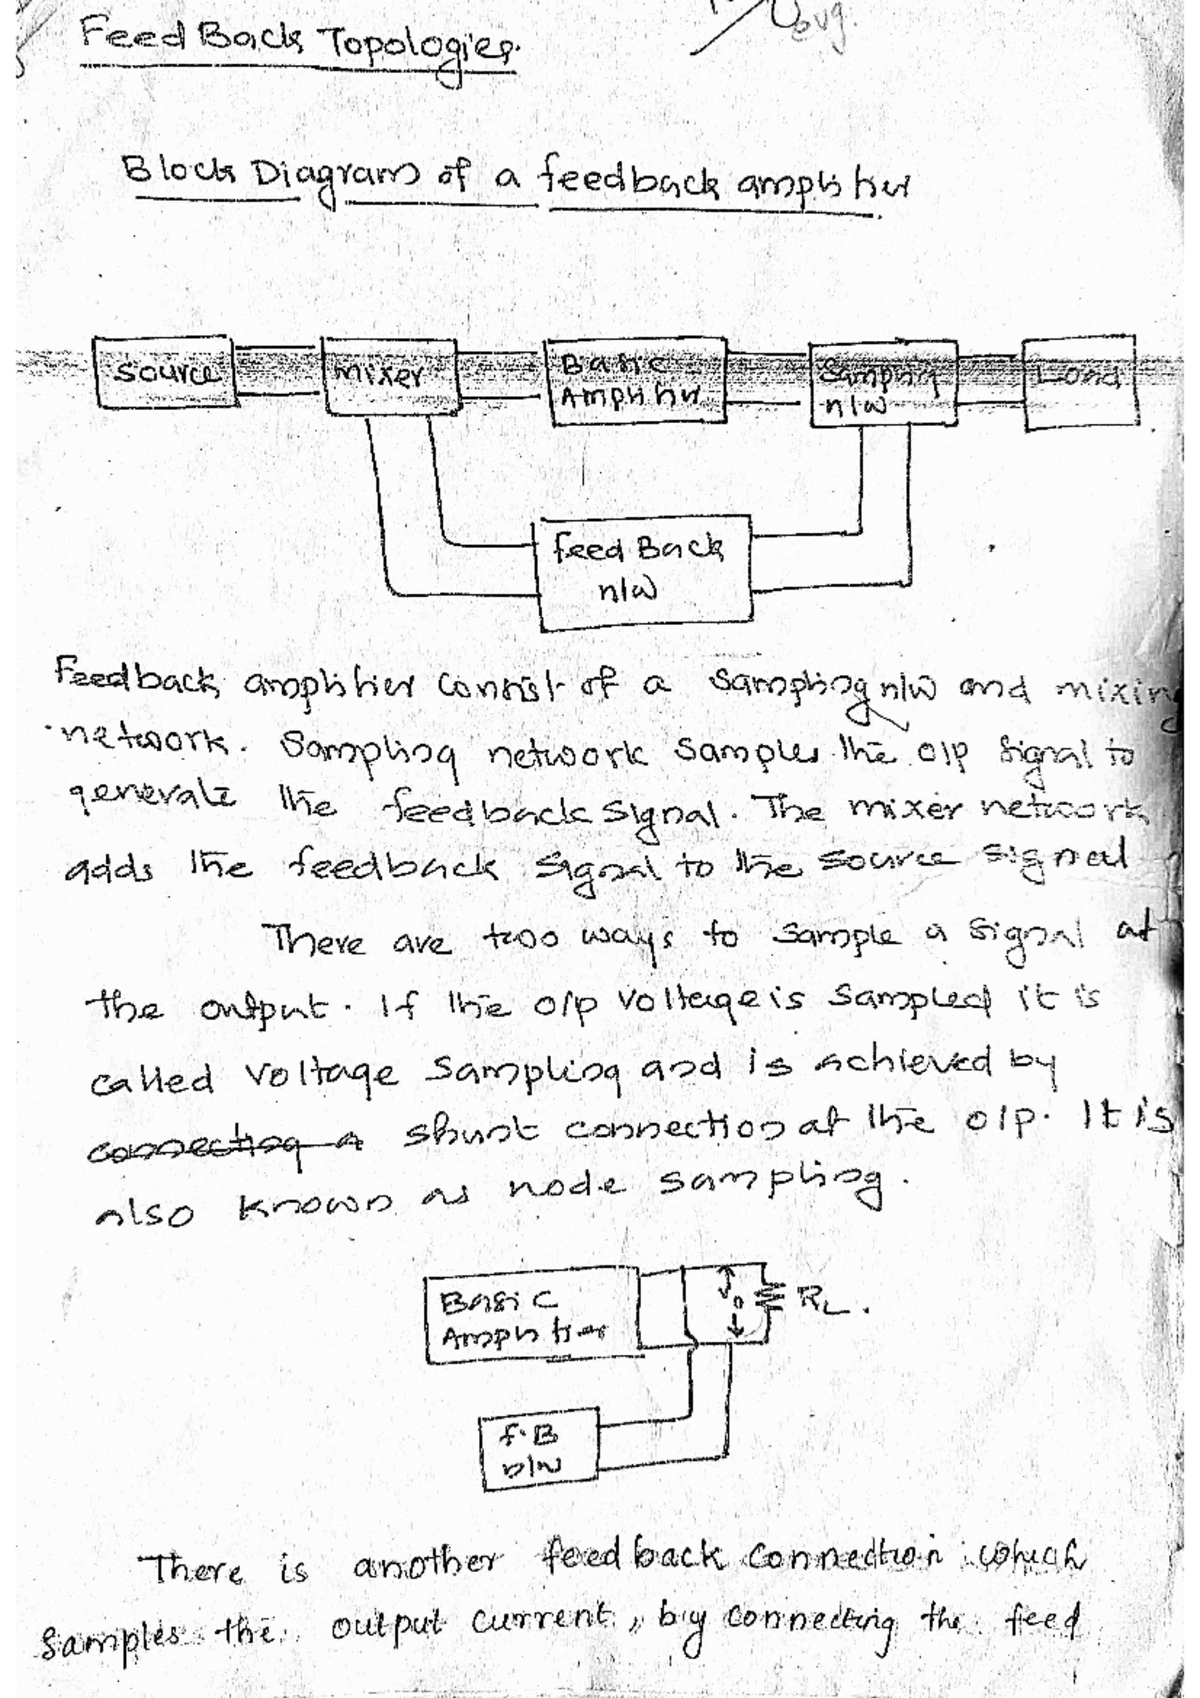 Feed Back Topologies.
Block Diagram of a feedback amplifier
Source
Mixer
Basic
Amplifier
Sampling
n/w
Load
feed Back
n/w
Feedback amplifier consist of a Sampling n/w and mixing
network. Sampling network samples the o/p signal to
generate the feedback signal. The mixer network
adds the feedback signal to the source signal
There are two ways to sample a signal at
the output. If the o/p voltage is sampled it is
called voltage sampling and is achieved by
connecting a shunt connection at the o/p. It is
also known as node sampling.
Basic
Amplifier
Vo
RL.
f.B
n/w
There is another feedback connection which
samples the output current, by connecting the feed